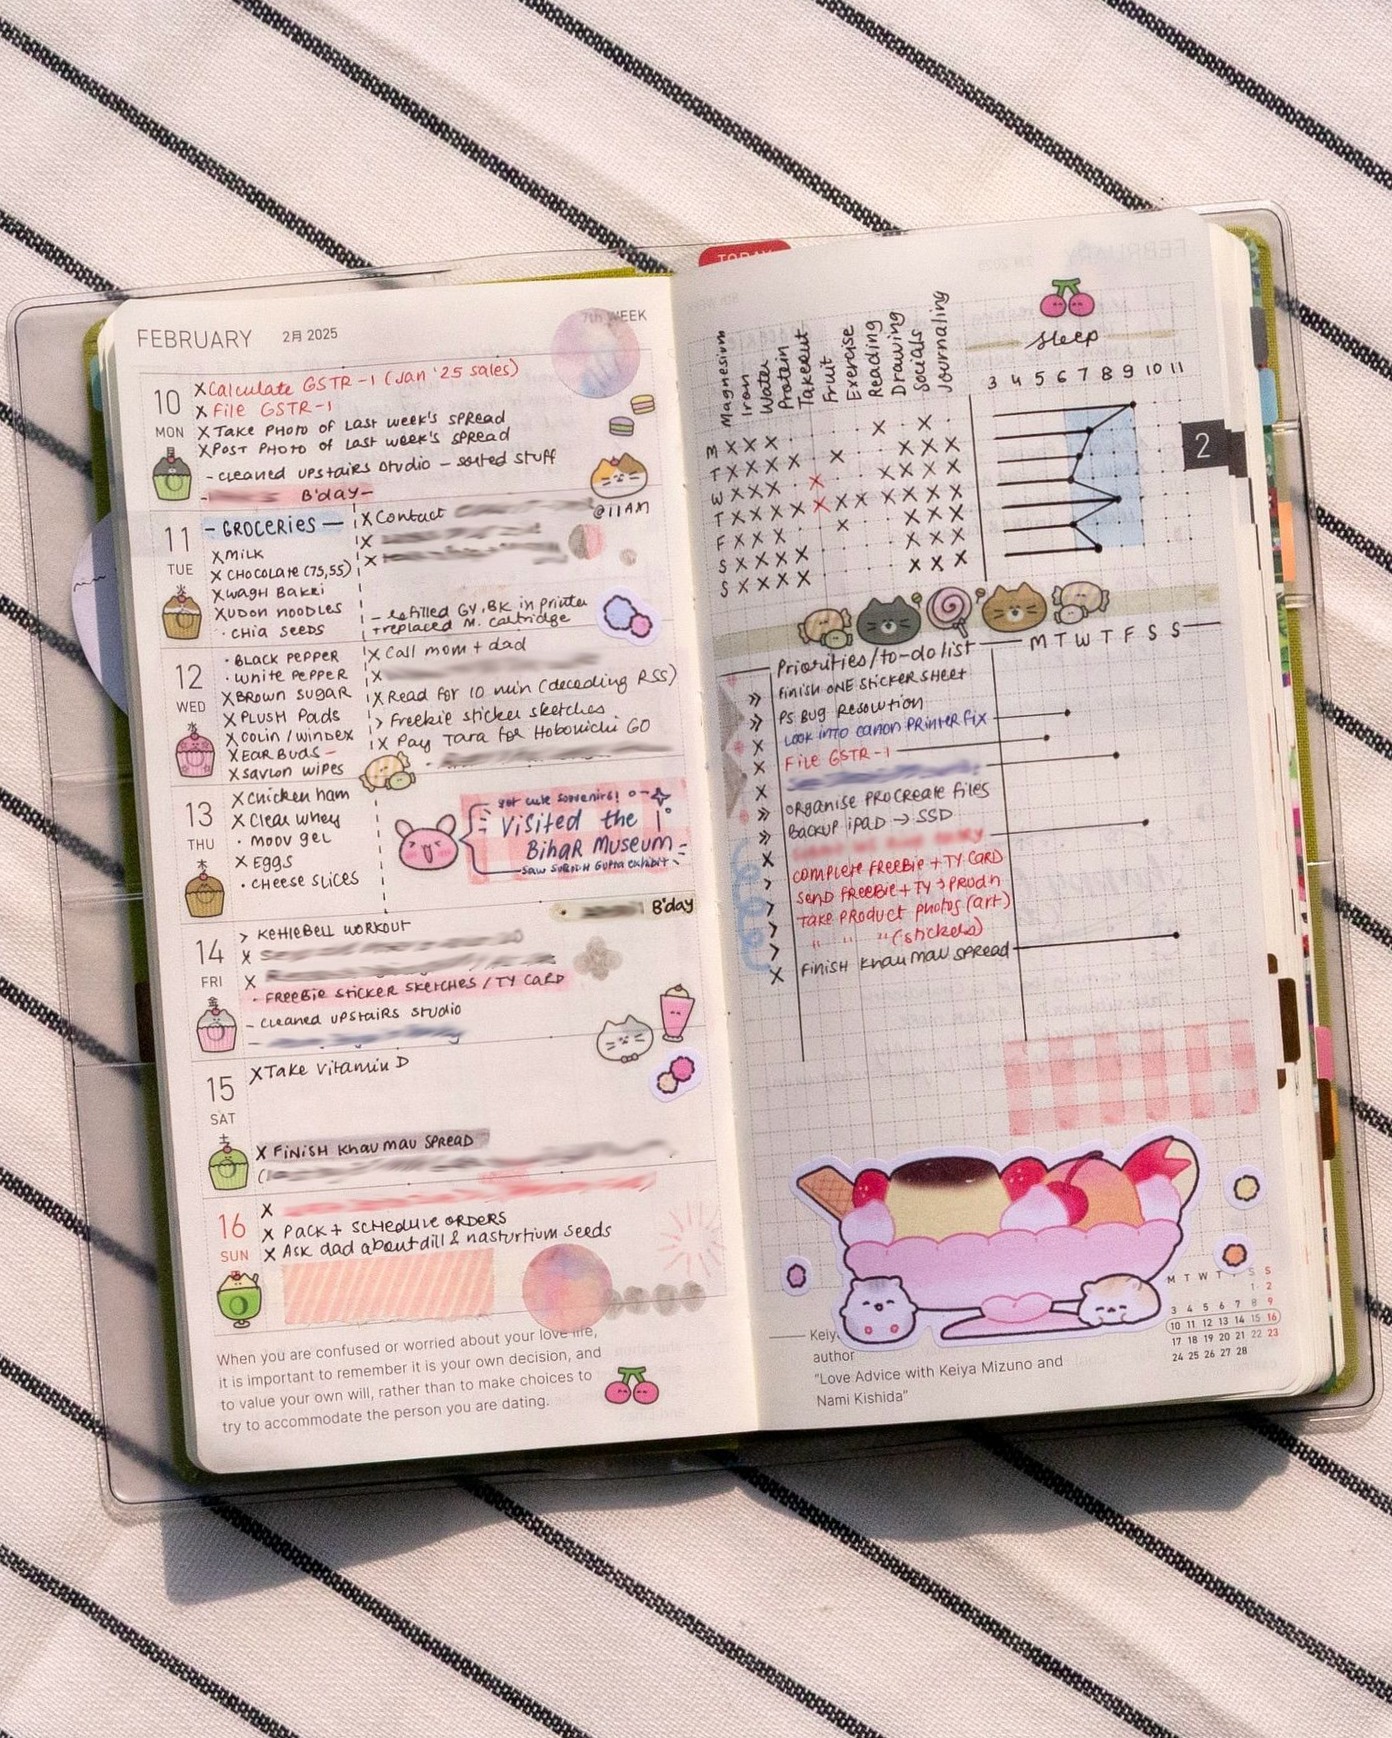 FEBRUARY 2月 2025
7th WEEK
10
MON
X Calculate GSTR-1 (Jan '25 sales)
X File GSTR-1
X Take PHOTO of Last week's SPREAD
X POST PHOTO of Last week's SPREAD
- cleaned upstairs studio - sorted stuff
B'day -
11
TUE
- GROCERIES -
X MILK
X CHOCOLATE (75,55)
X WAGH BAKRI
X UDON NOODLES
· CHIA SEEDS
X Contact
@11AM
X
X
- refilled GY, BK in Printer
+ replaced M. cartridge
12
WED
· BLACK PEPPER
· WHITE PEPPER
X BROWN SUGAR
X PLUSH Pads
X COLIN/WINDEX
X EAR BUDS -
X savlon wipes
X Call mom + dad
X
X Read for 10 min (decoding RSS)
> Freebie sticker sketches
X Pay Tara for Hobonichi GO
13
THU
X Chicken ham
X Clear whey
· moov gel
X EGGS
· CHEESE SLICES
got cute souvenirs!
Visited the
Bihar Museum
saw Subodh Gupta exhibit
B'day
14
FRI
> KETTLEBELL WORKOUT
X
X
· FREEBIE STICKER SKETCHES / TY CARD
- cleaned UPSTAIRS STUDIO
15
SAT
X Take Vitamin D
X FINISH Khau mau SPREAD
16
SUN
X
X Pack + SCHEDULE ORDERS
X Ask dad about dill & nasturtium seeds
When you are confused or worried about your love life,
it is important to remember it is your own decision, and
to value your own will, rather than to make choices to
try to accommodate the person you are dating.
TODAY
Magnesium
Iron
Water
Protein
Takeout
Fruit
Exercise
Reading
Drawing
Socials
Journaling
Sleep
3 4 5 6 7 8 9 10 11
M X X X X X
T X X X X X X X X
W X X X X X X X X X
T X X X X X X X X X X X
F X X X X X X X
S X X X X X X X
S X X X X
2
Priorities/to-do list
M T W T F S S
» Finish ONE STICKER SHEET
» PS BUG RESOLUTION
X Look into canon PRINTER fix
X File GSTR-1
X
» ORGANISE PROCREATE FILES
» BACKUP iPAD → SSD
X
> COMPLETE FREEBIE + TY CARD
> SEND FREEBIE + TY → PRODN
> TAKE PRODUCT photos (art)
> " " " (stickers)
X FINISH Khau mau SPREAD
Keiy
author
"Love Advice with Keiya Mizuno and
Nami Kishida"
M T W T S S
1 2
3 4 5 6 7 8 9
10 11 12 13 14 15 16
17 18 19 20 21 22 23
24 25 26 27 28